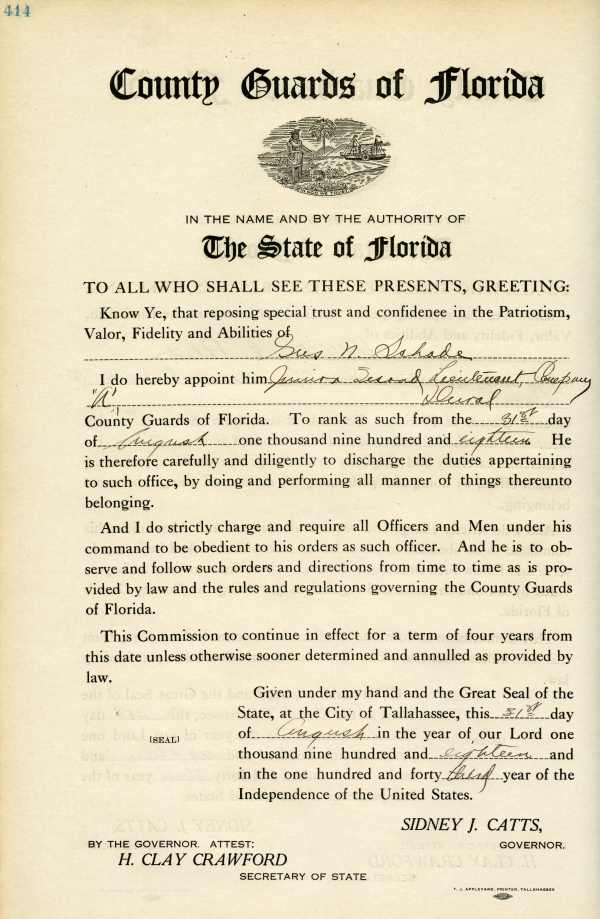 414
County Guards of Florida
IN THE NAME AND BY THE AUTHORITY OF
The State of Florida
TO ALL WHO SHALL SEE THESE PRESENTS, GREETING:
Know Ye, that reposing special trust and confidenee in the Patriotism,
Valor, Fidelity and Abilities of
Gus N. Schade
I do hereby appoint him Junior Second Lieutenant, Company
"A", Duval
County Guards of Florida. To rank as such from the 31st day
of August one thousand nine hundred and eighteen He
is therefore carefully and diligently to discharge the duties appertaining
to such office, by doing and performing all manner of things thereunto
belonging.
And I do strictly charge and require all Officers and Men under his
command to be obedient to his orders as such officer. And he is to ob-
serve and follow such orders and directions from time to time as is pro-
vided by law and the rules and regulations governing the County Guards
of Florida.
This Commission to continue in effect for a term of four years from
this date unless otherwise sooner determined and annulled as provided by
law.
Given under my hand and the Great Seal of the
State, at the City of Tallahassee, this 31st day
of August in the year of our Lord one
[SEAL]
thousand nine hundred and eighteen and
in the one hundred and forty third year of the
Independence of the United States.
SIDNEY J. CATTS,
BY THE GOVERNOR. ATTEST: GOVERNOR.
H. CLAY CRAWFORD
SECRETARY OF STATE
T. J. APPLEYARD, PRINTER, TALLAHASSEE